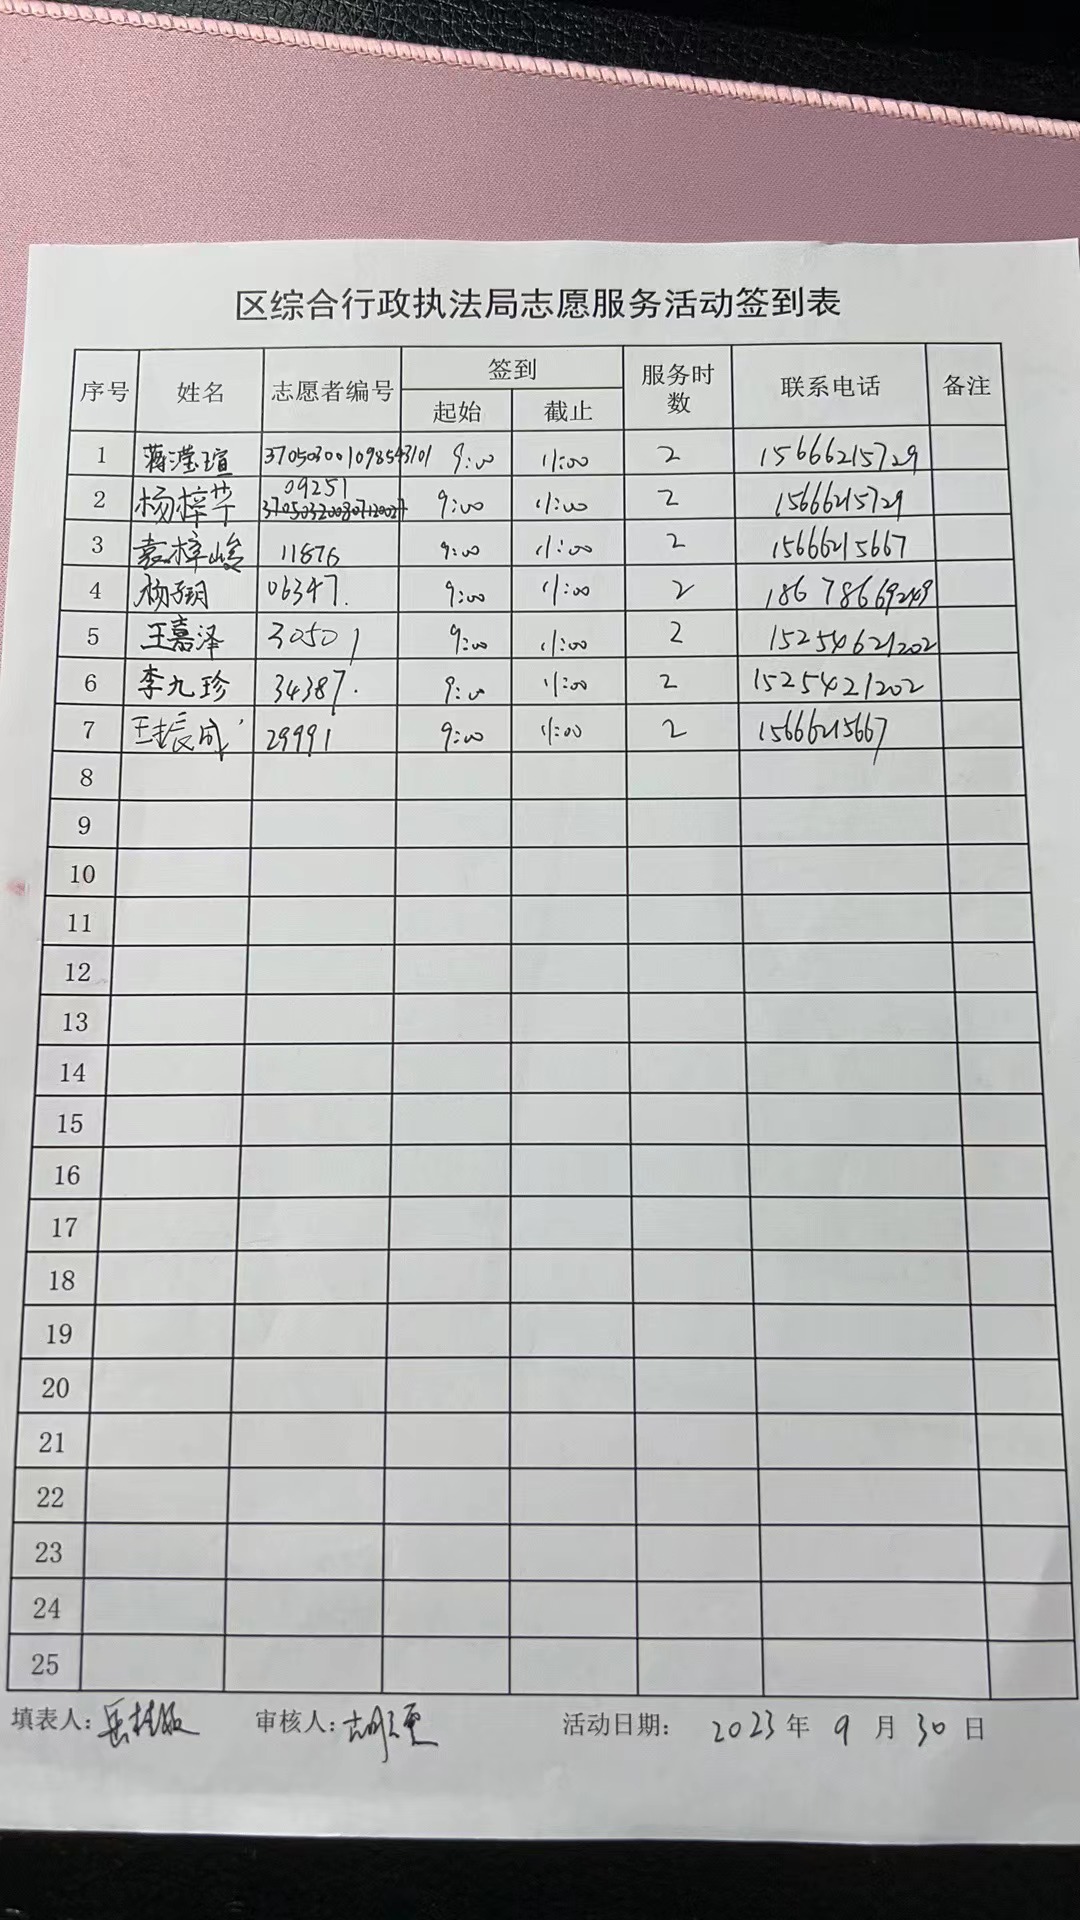 区综合行政执法局志愿服务活动签到表
序号 姓名 志愿者编号 签到 服务时数 联系电话 备注
起始 截止
1 蒋滢瑄 370503001098543101 9:00 11:00 2 15666215729
2 杨梓芊 09251 9:00 11:00 2 15666215729
3 袁梓峻 11876 9:00 11:00 2 15666215667
4 杨子玥 06347. 9:00 11:00 2 18678669249
5 王嘉泽 30501 9:00 11:00 2 15254621202
6 李九珍 34387. 9:00 11:00 2 1525421202
7 王振成 29991 9:00 11:00 2 15666215667
8
9
10
11
12
13
14
15
16
17
18
19
20
21
22
23
24
25
填表人: 审核人: 活动日期: 2023 年 9 月 30 日